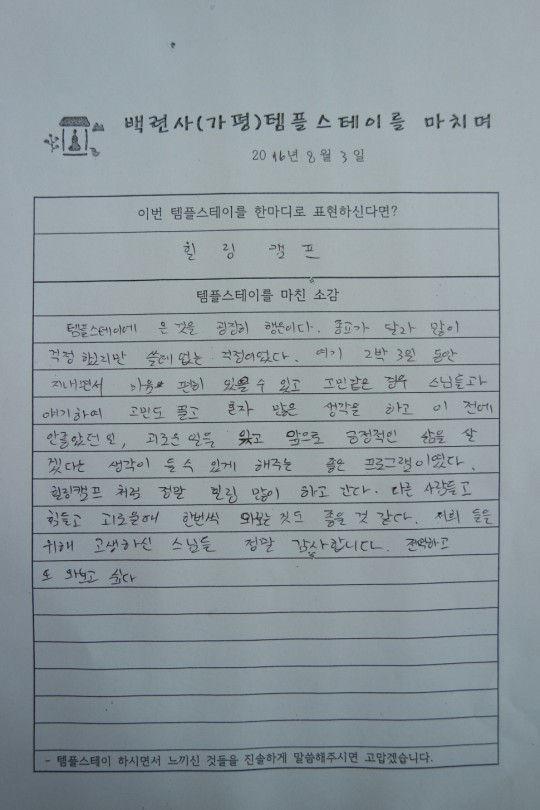 백련사(가평)템플스테이를 마치며
2016년 8월 3일
이번 템플스테이를 한마디로 표현하신다면?
힐링 캠프
템플스테이를 마친 소감
템플스테이에 온 것을 굉장히 행운이다. 종교가 달라 많이
걱정 했었지만 쓸데 없는 걱정이었다. 여기 2박 3일 동안
지내면서 마음 편히 있을 수 있고 고민같은 경우 스님들과
얘기하여 고민도 풀고 혼자 많은 생각을 하고 이 전에
안좋았던 일, 괴로운 일을 잊고 앞으로 긍정적인 삶을 살
겠다는 생각이 들 수 있게 해주는 좋은 프로그램이였다.
힐링캠프 처럼 정말 힐링 많이 하고 간다. 다른 사람들고
힘들고 괴로울때 한번씩 와보는 것도 좋을 것 같다. 저희 들을
위해 고생하신 스님들 정말 감사합니다. 전역하고
또 와보고 싶다
- 템플스테이 하시면서 느끼신 것들을 진솔하게 말씀해주시면 고맙겠습니다.